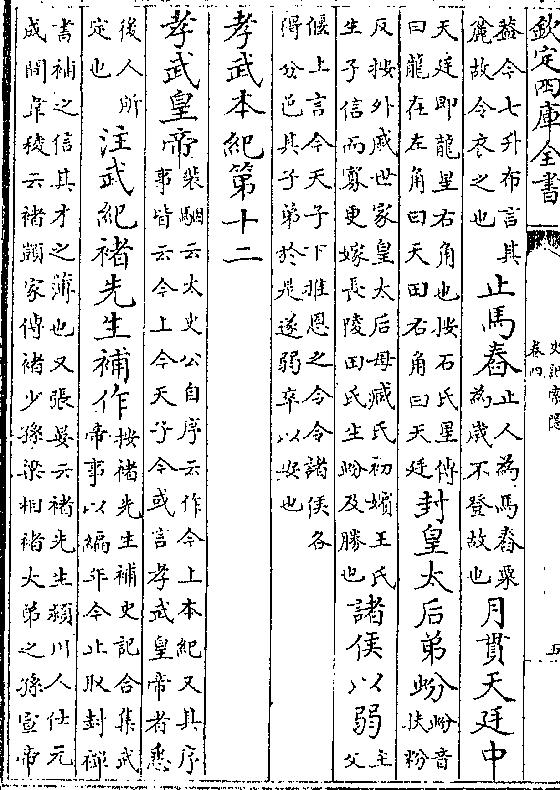 欽定四庫全書 史記索隱 卷四 五
蓋今七升布言其麄故令衣之也 止馬舂 止人為馬舂粟為歳不登故也 月貫天廷中
天廷即龍星右角也按石氏星傳曰龍在左角曰天田右角曰天廷 封皇太后弟蚡 蚡音扶粉
反按外戚世家皇太后母臧氏初嬪王氏生子信而寡更嫁長陵田氏生蚡及勝也 諸侯以弱 主父
偃上言今天子下推恩之令令諸侯各得分邑其子弟於是遂弱卒以安也
孝武本紀第十二
孝武皇帝 裴駰云太史公自序云作今上本紀又其序事皆云今上今天子今或言孝武皇帝者悉
後人所定也 注武紀褚先生補作 按褚先生補史記合集武帝事以編年今止取封禪
書補之信其才之薄也又張晏云褚先生潁川人仕元成間韋稜云褚顗家傳褚少孫梁相褚大弟之孫宣帝